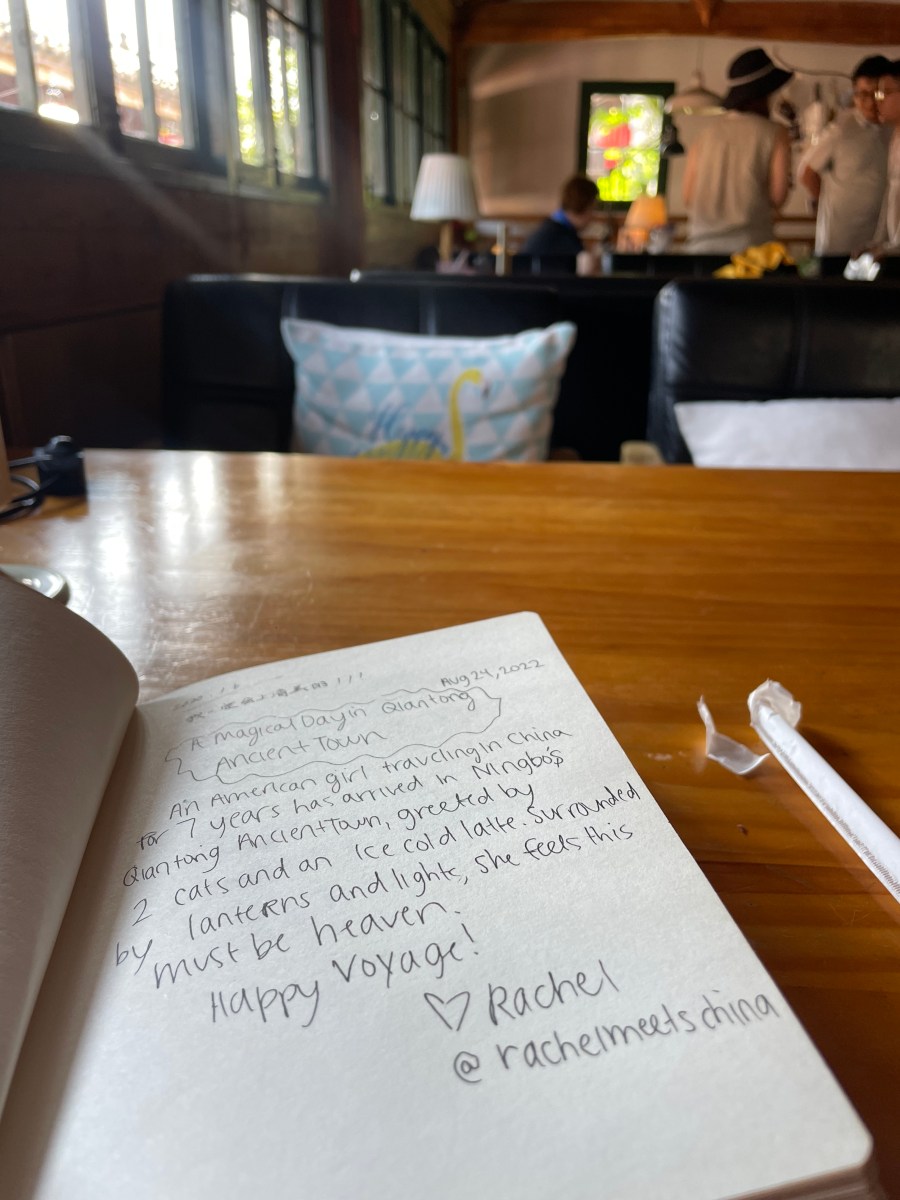 Aug 24, 2022
A Magical Day in Qiantong
Ancient Town
An American girl traveling in China
for 7 years has arrived in Ningbo's
Qiantong Ancient Town, greeted by
2 cats and an ice cold latte. Surrounded
by lanterns and lights, she feels this
must be heaven.
Happy Voyage!
♡ Rachel
@rachelmeetschina
Happy